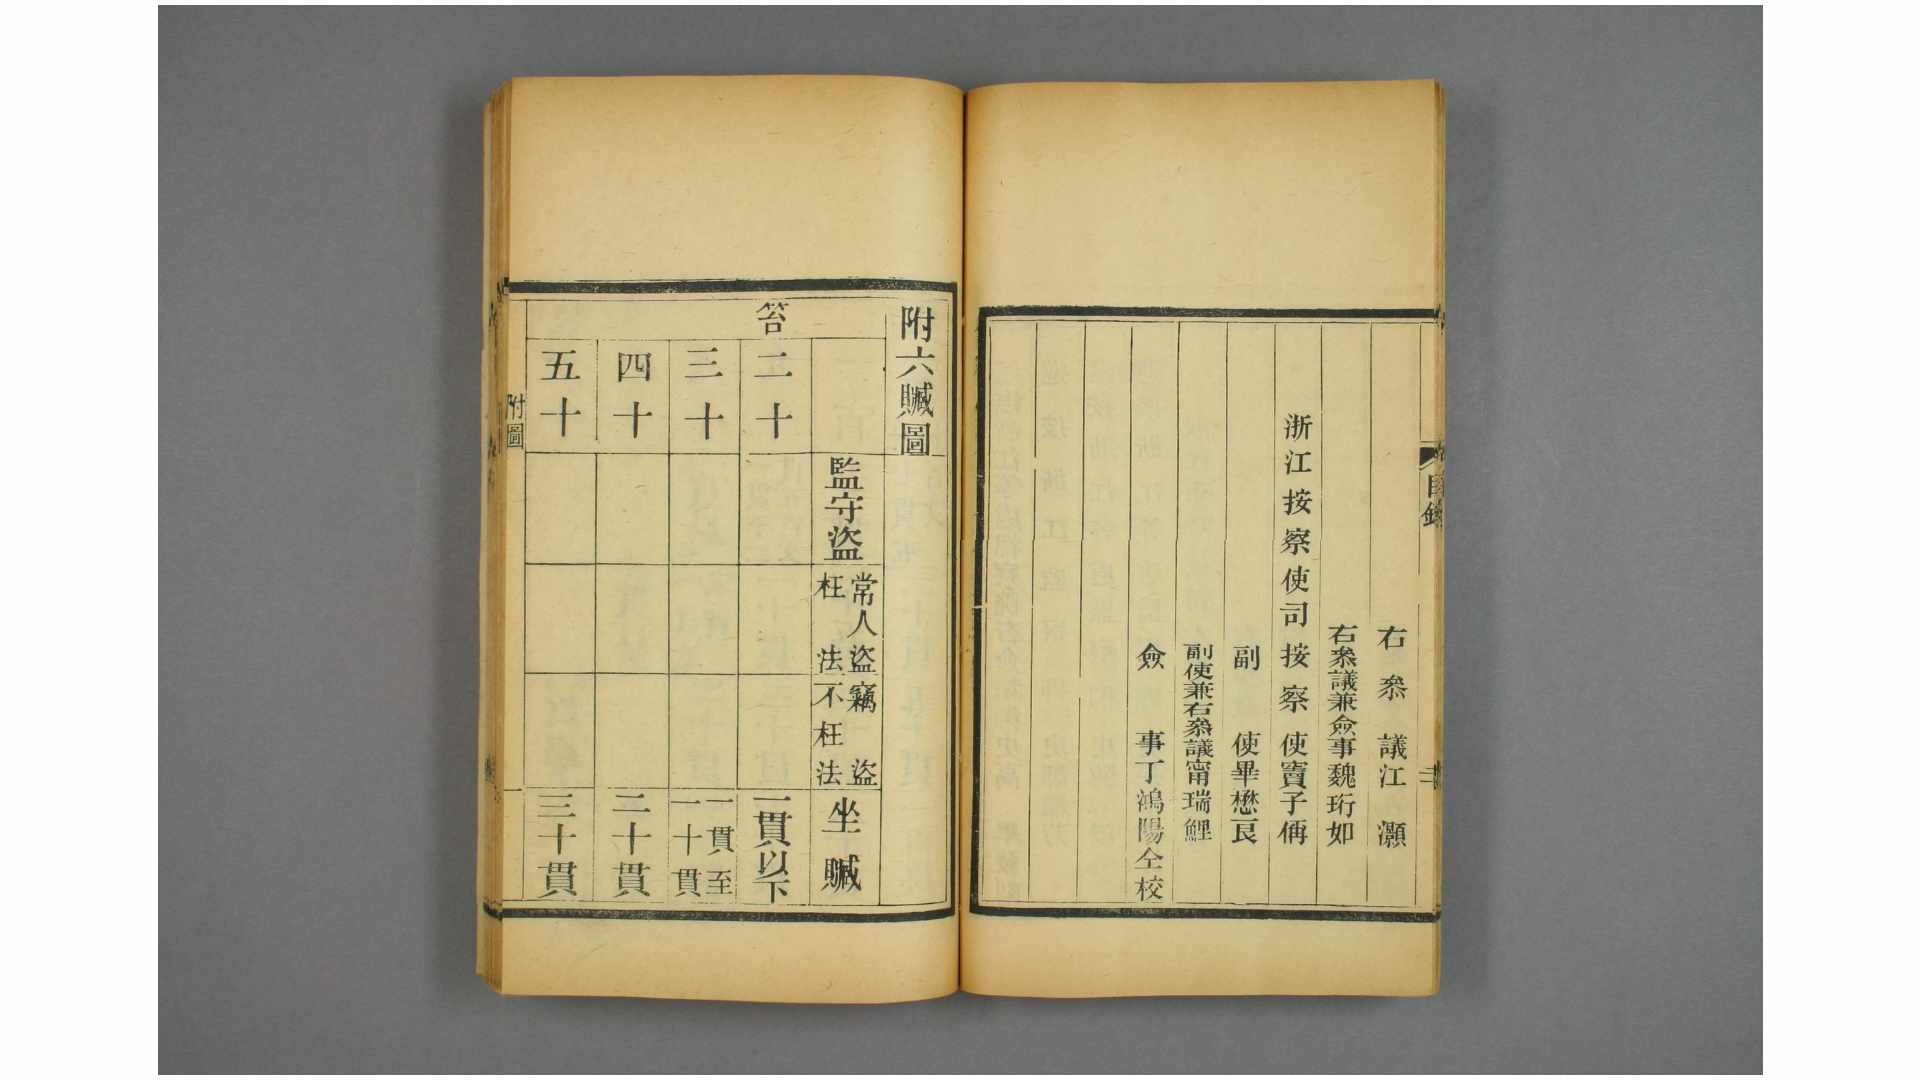 右叅議江灝
右叅議兼僉事魏珩如
浙江按察使司按察使竇子偁
副使畢懋良
副使兼右叅議甯瑞鯉
僉事丁鴻陽仝校
目錄
附六贓圖
笞
二十
三十
四十
五十
監守盜
常人盜
枉法
竊盜
不枉法
坐贓
一貫以下
一貫至
一十貫
二十貫
三十貫
附圖
一